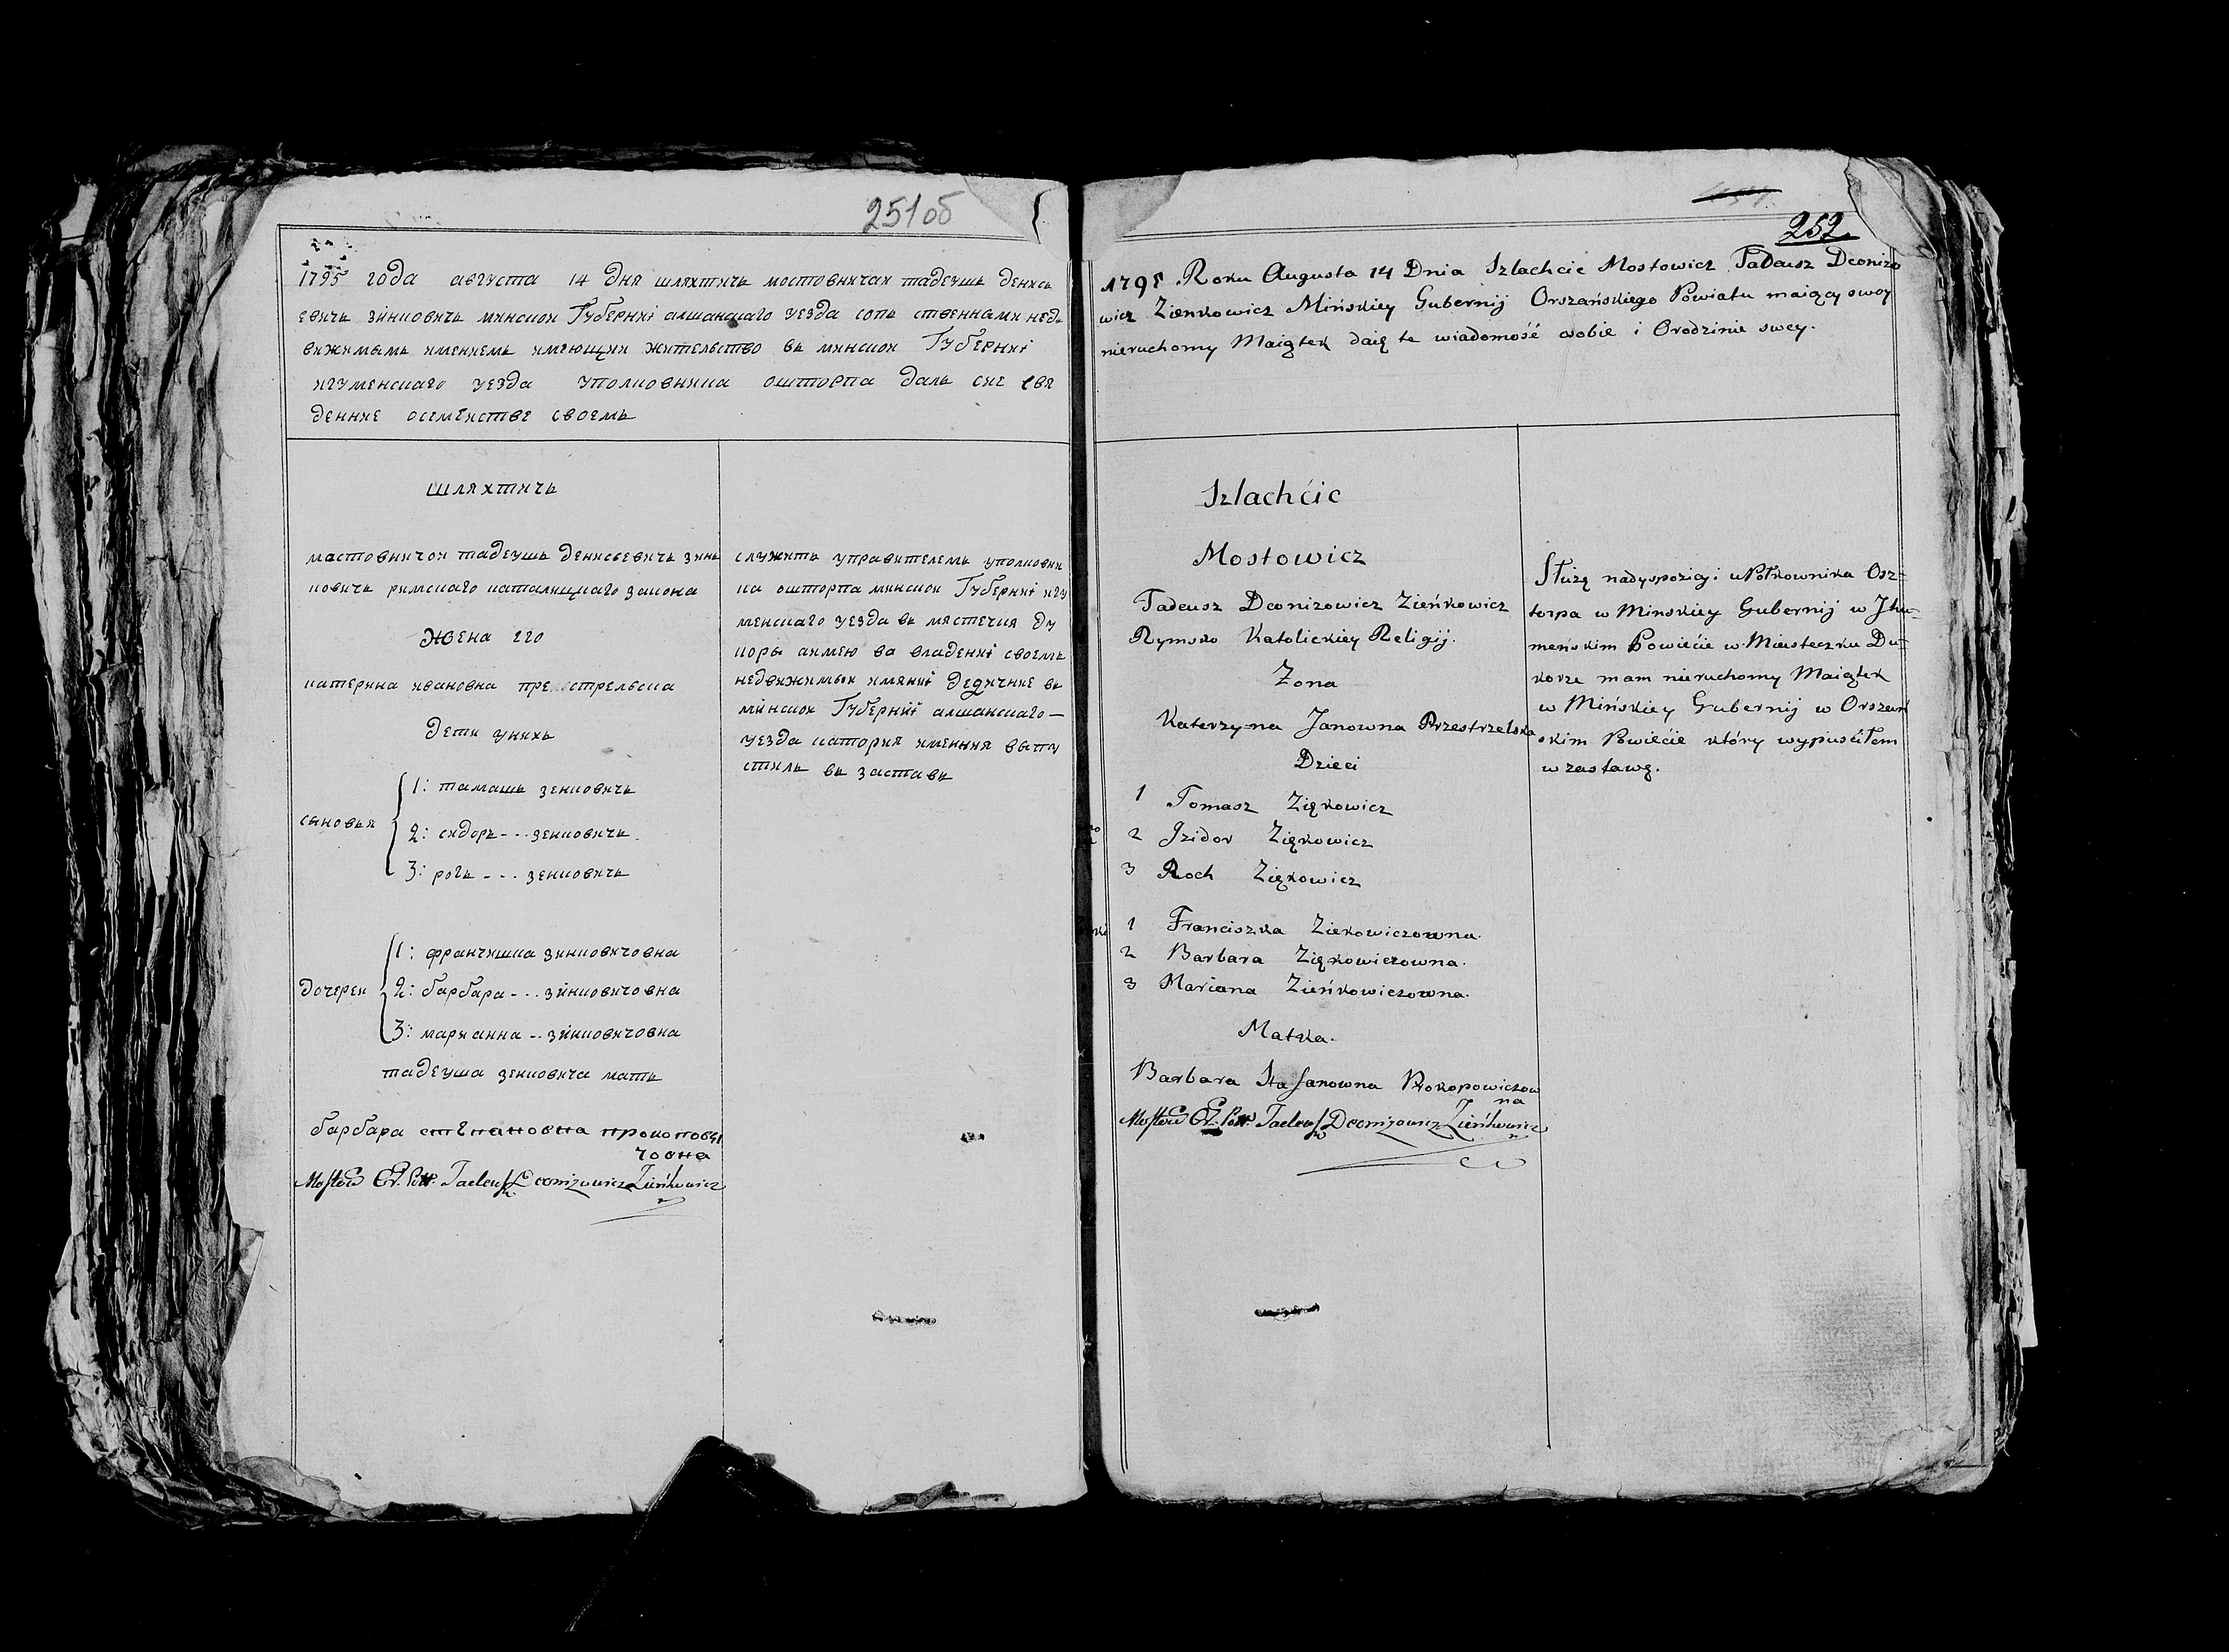 251об
1795 года августа 14 дня шляхтичь мостовничаи тадеушь денись
евичь зинковичь минскои Губерниі алшанскаго уезда сопь ственнами нед
вижимымь имениемь имеющии жительство вь минскои Губерниі
игуменскаго уезда уполковника ошторпа даль сие свя
денние осемействе своемь
шляхтичь
мастовничои тадеушь денисьевичь зинь
ковичь римскаго каталицкаго закона
жена его
катерина ивановна
дети унихь
сыновья
1: тамашь зенковичь
2: сидорь - - - зенковичь
3: рогь - - - зенковичь
дочереи
1: францишка зинковичовна
2: барбара - - - зинковичовна
3: марианна - - зинковичовна
тадеуша зенковича мать
барбара степановна прокопови
човна
Tadeusz Deonizowicz Zieńkowicz
служить управителемь уполковни
ка ошторпа минскои Губерниі игу
менскаго уезда вь мястечки ду
коры аимею ва владениі своемь
недвижимыи имяниі дедичние вь
минскои Губерниі алшанскаго —
уезда катория имения выпу
стиль вь заставь
252
1795 Roku Augusta 14 Dnia Szlachcic Mostowicz Tadeusz Deonizo
wicz Zienkowicz Mińskiey Gubernij Orszańskiego Powiatu maiący swoy
nieruchomy Maiątek daię te wiadomość osobie i Orodzinie swey.
Szlachćic
Mostowicz
Tadeusz Deonizowicz Zieńkowicz
Rymsko Katolickiey Religij.
Zona
Katerzyna Janowna Przestrzelska
Dzieci
1 Tomasz Ziękowicz
2 Izidor Ziękowicz
3 Roch Ziękowicz
1 Franciszka Ziekowiczowna.
2 Barbara Ziękowiczowna.
3 Mariana Zieńkowiczowna.
Matka.
Barbara Stafanowna Prokopowiczow
na
Tadeusz Deonizowicz Zieńkowicz
Służę nadyspozicyi uPółkownika Osz=
torpa w Minskiey Gubernij w Jhu=
meńskim Powiećie w Miasteczku Du=
korze mam nieruchomy Maiątek
w Mińskiey Gubernij w Orszań
skim Powiećie który wypuśćiłem
w zastawę.